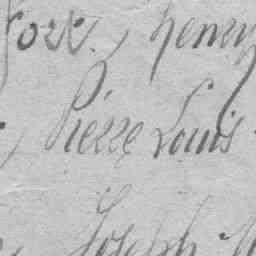 fort. , henry
, Pierre Louis
Joseph